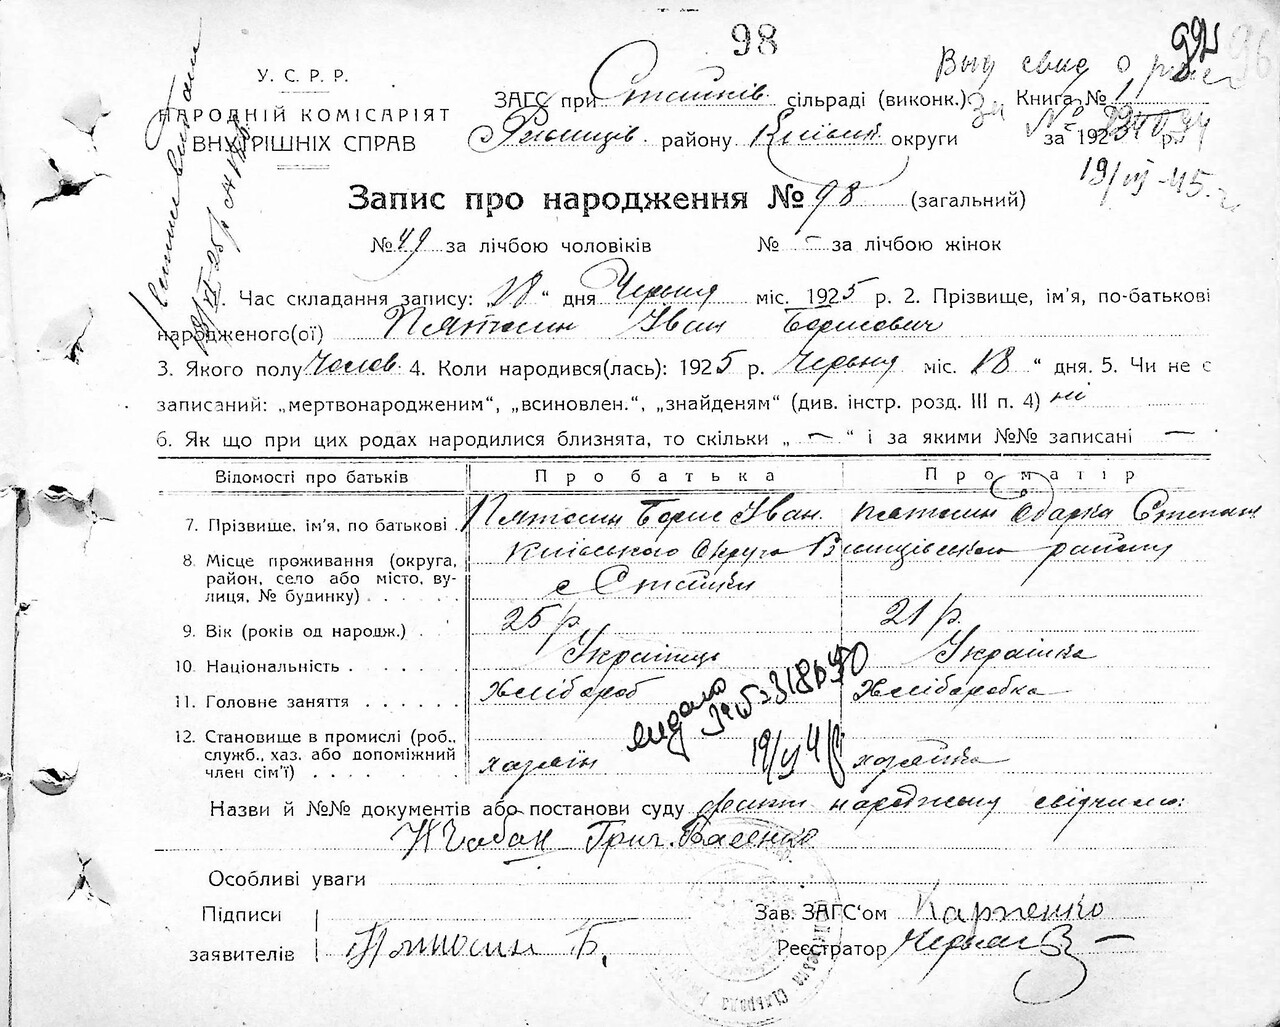 98
992
96
Выд свид о рожд
У. С. Р. Р.
НАРОДНІЙ КОМІСАРІЯТ
ВНУТРІШНІХ СПРАВ
ЗАГС при Стайків сільраді (виконк.) Книга № 1
району Київськ округи за 192 р.
За №
19/VI-45 г.
Запис про народження № 98 (загальний)
№ 49 за лічбою чоловіків № – за лічбою жінок
1. Час складання запису: „18“ дня Червня міс. 1925 р. 2. Прізвище, ім'я, по-батькові
народженого(ої) Пятосин Іван Борисович
3. Якого полу Чолов. 4. Коли народився(лась): 1925 р. Червня міс. 18 “ дня. 5. Чи не є
записаний: „мертвонародженим“, „всиновлен.“, „знайденям“ (див. інстр. розд. III п. 4) ні
6. Як що при цих родах народилися близнята, то скільки „ — “ і за якими №№ записані —
Відомості про батьків Про батька Про матір
7. Прізвище, ім'я, по батькові . Пятосин Борис Іван. Пятосин Одарка Степан
8. Місце проживання (округа, район, село або місто, вулиця, № будинку) . . . . .
Київського Округа району
с Стайки
9. Вік (років од народж.) . . 25 р. 21 р.
10. Національність . . . . . . Українець Українка
11. Головне заняття . . . . . . Хлібороб Хліборобка
12. Становище в промислі (роб., служб., хаз. або допоміжний член сім'ї) . . . . . . хазяїн хазяйка
видано
19/VI 4
Назви й №№ документів або постанови суду факт народжену свідчили:
Чабан Григ. Васенко
Особливі уваги
Підписи
заявителів Пятосин Б.
Зав. ЗАГС'ом Карпенко
Реєстратор